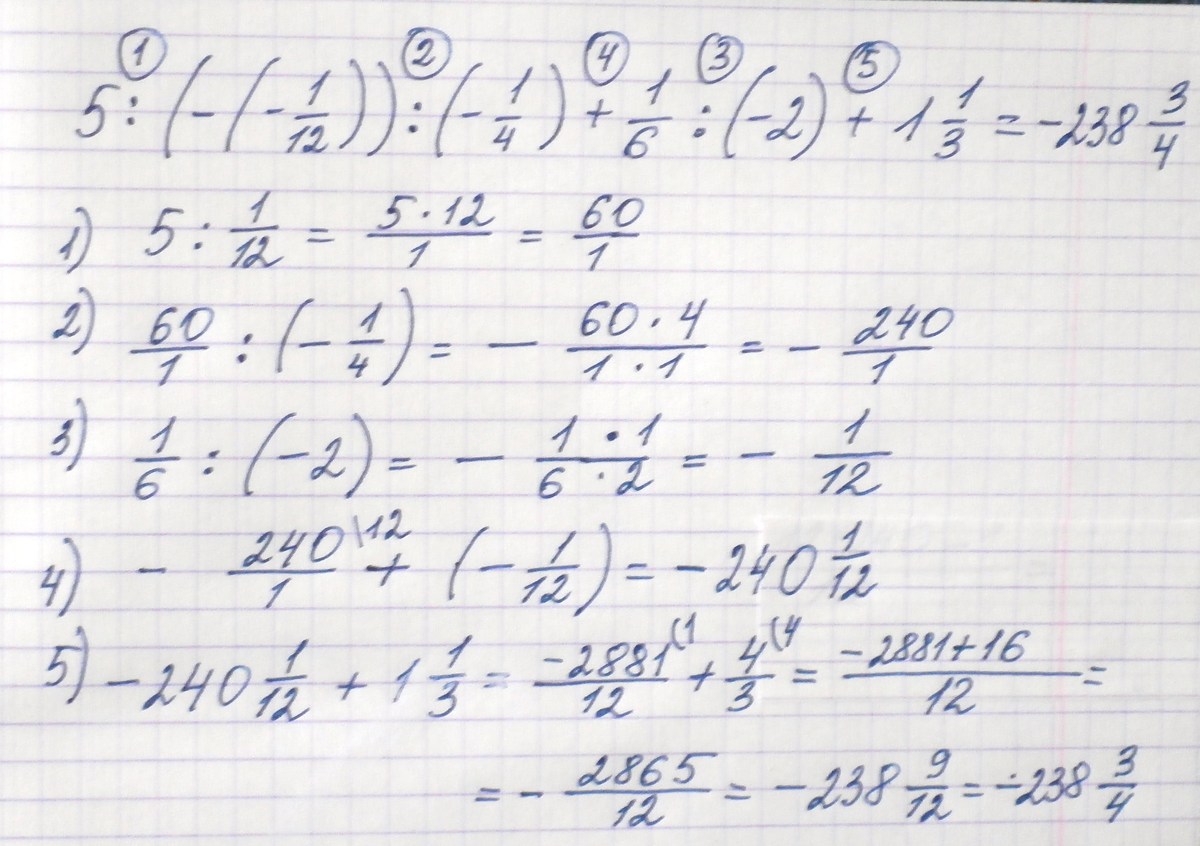 ① ② ④ ③ ⑤
5 : (-(-1/12)) : (-1/4) + 1/6 : (-2) + 1 1/3 = -238 3/4
1) 5 : 1/12 = 5·12/1 = 60/1
2) 60/1 : (-1/4) = - 60·4/1·1 = - 240/1
3) 1/6 : (-2) = - 1·1/6·2 = - 1/12
4) - 240/1 \12 + (-1/12) = -240 1/12
5) -240 1/12 + 1 1/3 = -2881/12 (1 + 4/3 (4 = -2881+16/12 =
= - 2865/12 = -238 9/12 = -238 3/4